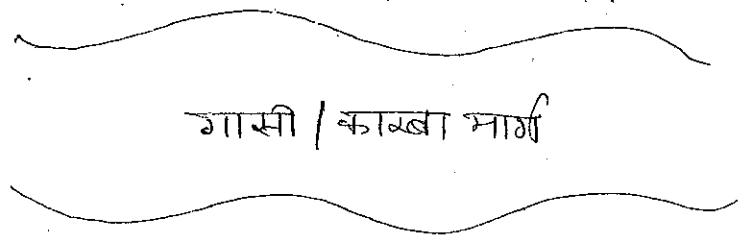 गासी / कारबा मार्ग